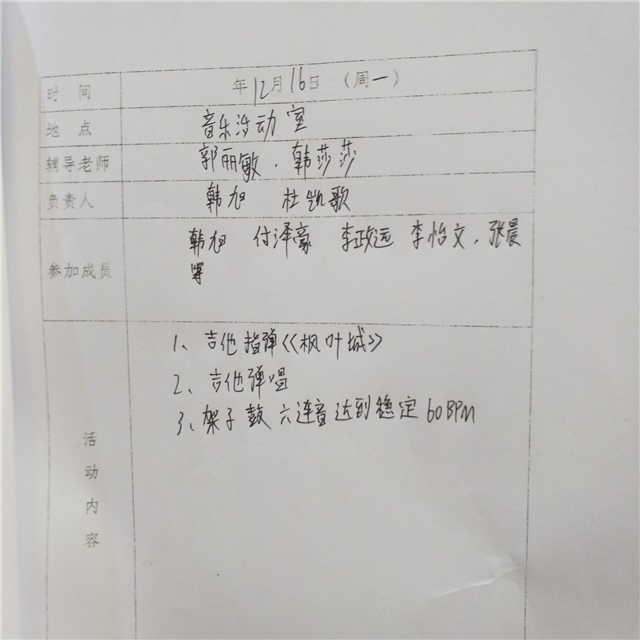 时 间 年12月16日 （周一）
地 点 音乐活动室
辅导老师 郭丽敏、韩莎莎
负责人 韩旭 杜凯歌
韩旭 付泽豪 李政远 李怡文、张晨
参加成员 等
1、吉他指弹《枫叶城》
2、吉他弹唱
3、架子鼓 六连音达到稳定60BPM
活
动
内
容